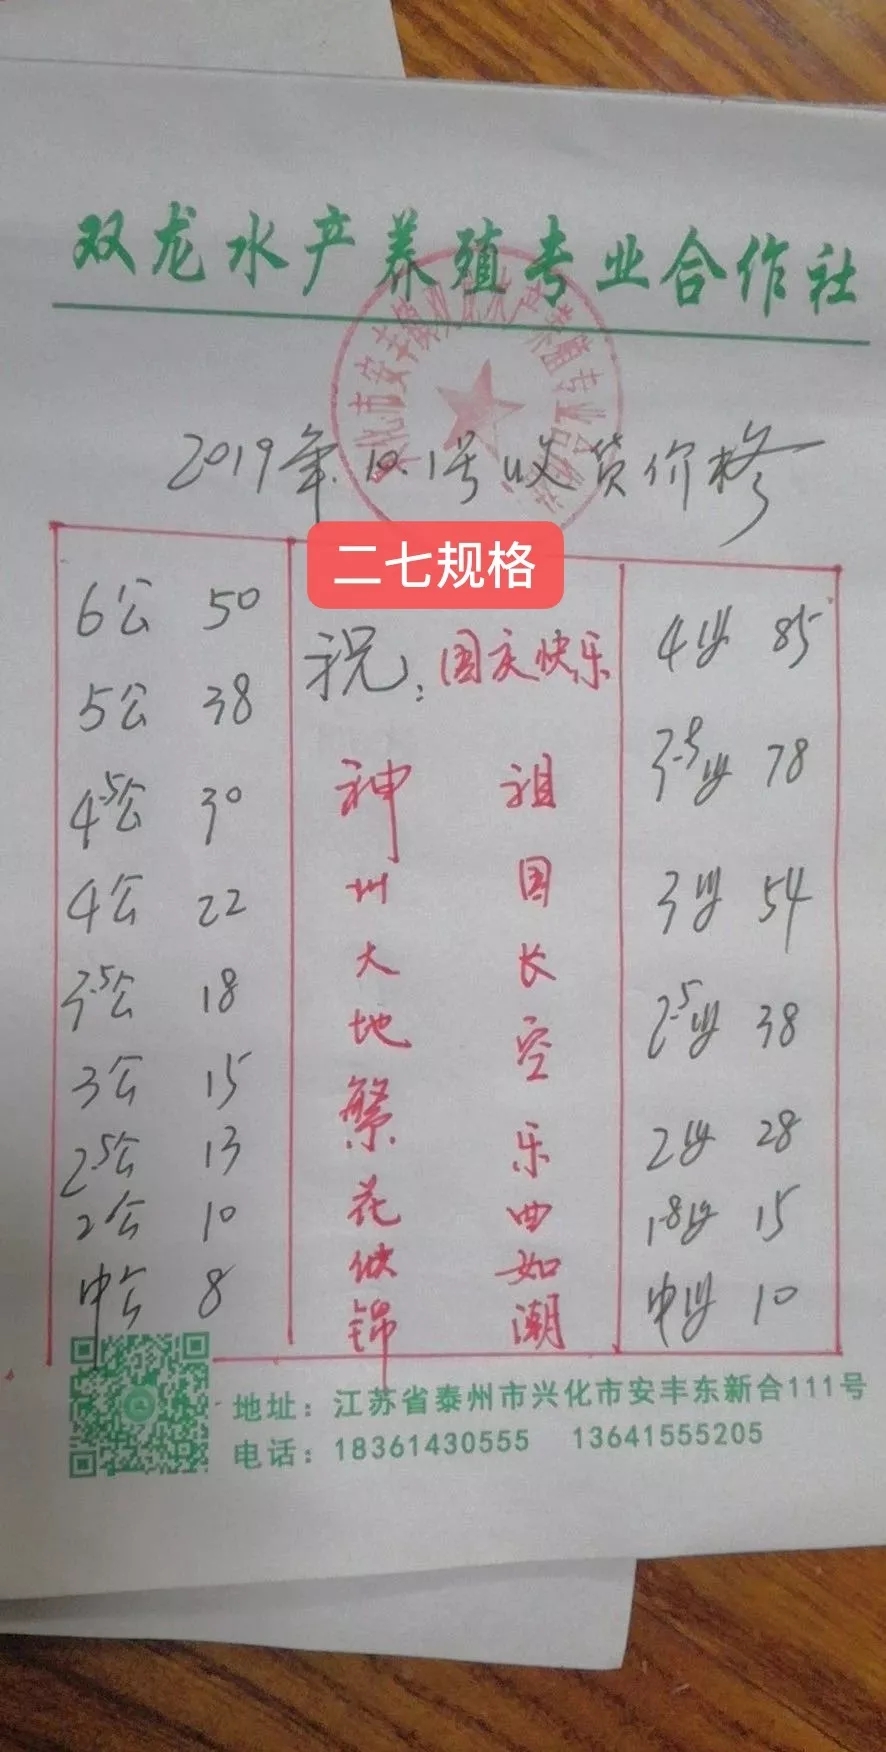 双龙水产养殖专业合作社
2019年.10.1号收货价格
二七规格
6公 50
5公 38
4.5公 30
4公 22
3.5公 18
3公 15
2.5公 13
2公 10
中公 8
祝:国庆快乐
神州大地繁花似锦
祖国长空乐曲如潮
4母 85
3.5母 78
3母 54
2.5母 38
2母 28
1.8母 15
中母 10
地址:江苏省泰州市兴化市安丰东新合111号
电话:18361430555 13641555205